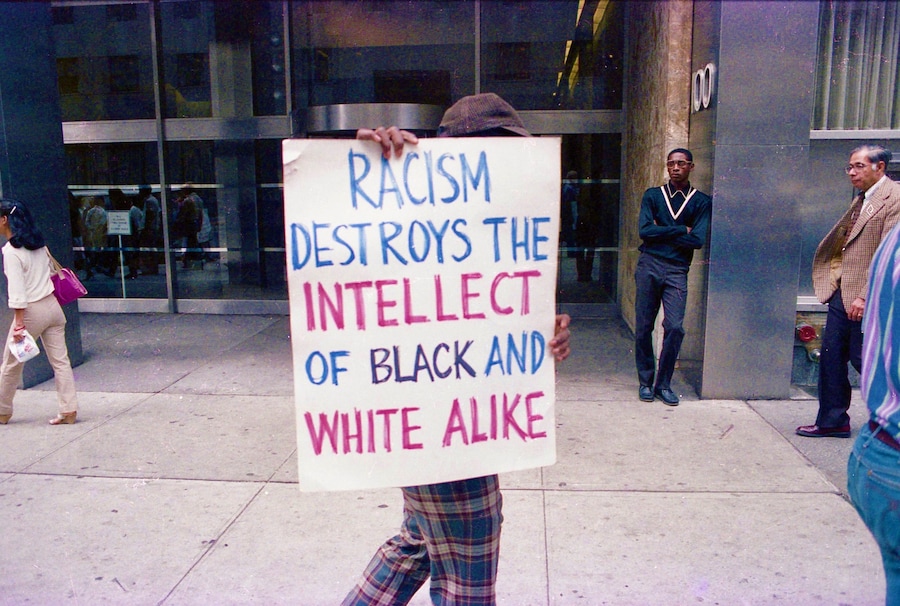 RACISM
DESTROYS THE
INTELLECT
OF BLACK AND
WHITE ALIKE
00